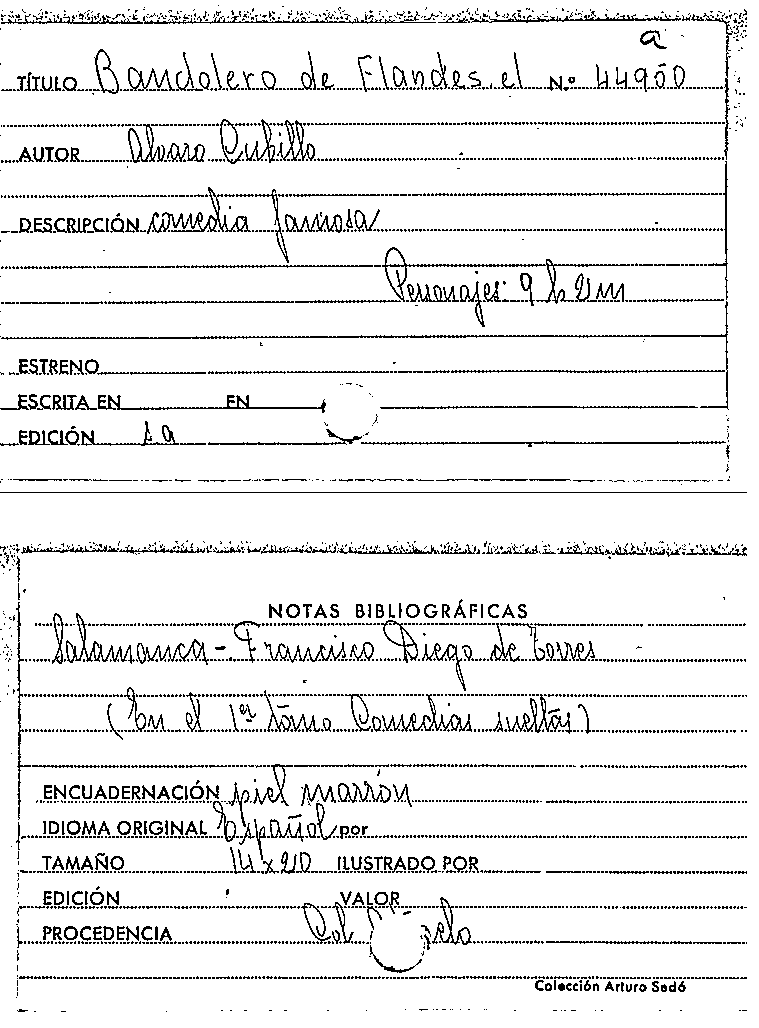 a
TÍTULO Bandolero de Flandes, el N.º 44950
AUTOR Alvaro Cubillo
DESCRIPCIÓN comedia famosa
Personajes: 9 h 2 m
ESTRENO
ESCRITA EN EN
EDICIÓN s a
NOTAS BIBLIOGRÁFICAS
Salamanca - Francisco Diego de Torres
(En el 1er tomo Comedias sueltas)
ENCUADERNACIÓN piel marrón
IDIOMA ORIGINAL Español por
TAMAÑO 14 x 20 ILUSTRADO POR
EDICIÓN VALOR
PROCEDENCIA Col
Colección Arturo Sedó